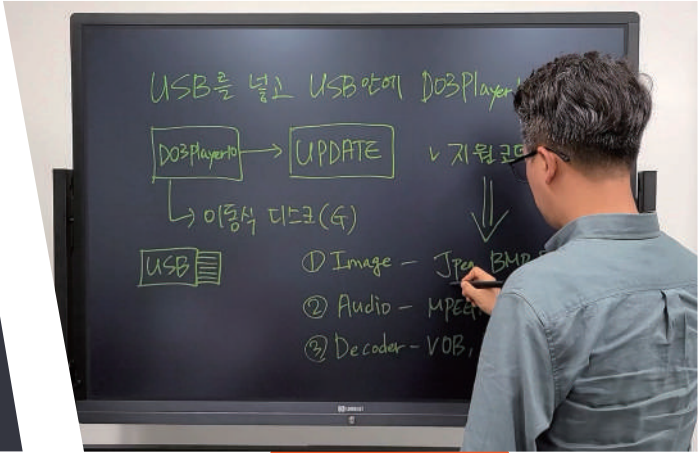 USB를 넣고 USB안에 DO3Player
DO3Player10 → UPDATE
✓ 지원코
↳ 이동식 디스크(G)
USB
① Image - Jpeg BMP
② Audio - MPEG
③ Decoder - VOB,